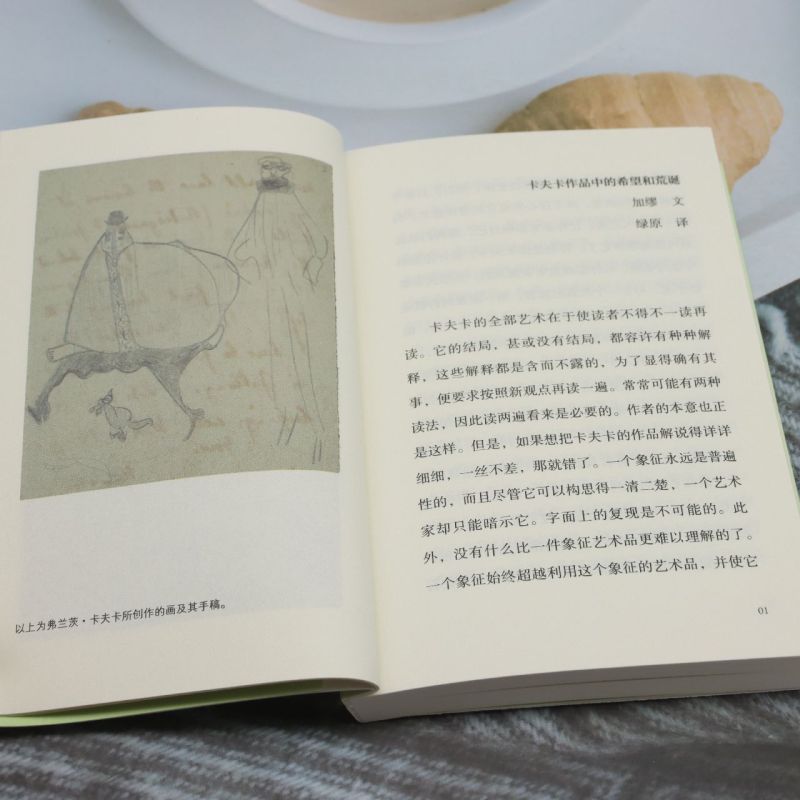 以上为弗兰茨·卡夫卡所创作的画及其手稿。
卡夫卡作品中的希望和荒诞
加缪 文
绿原 译
卡夫卡的全部艺术在于使读者不得不一读再
读。它的结局，甚或没有结局，都容许有种种解
释，这些解释都是含而不露的，为了显得确有其
事，便要求按照新观点再读一遍。常常可能有两种
读法，因此读两遍看来是必要的。作者的本意也正
是这样。但是，如果想把卡夫卡的作品解说得详详
细细，一丝不差，那就错了。一个象征永远是普遍
性的，而且尽管它可以构思得一清二楚，一个艺术
家却只能暗示它。字面上的复现是不可能的。此
外，没有什么比一件象征艺术品更难以理解的了。
一个象征始终超越利用这个象征的艺术品，并使它
01